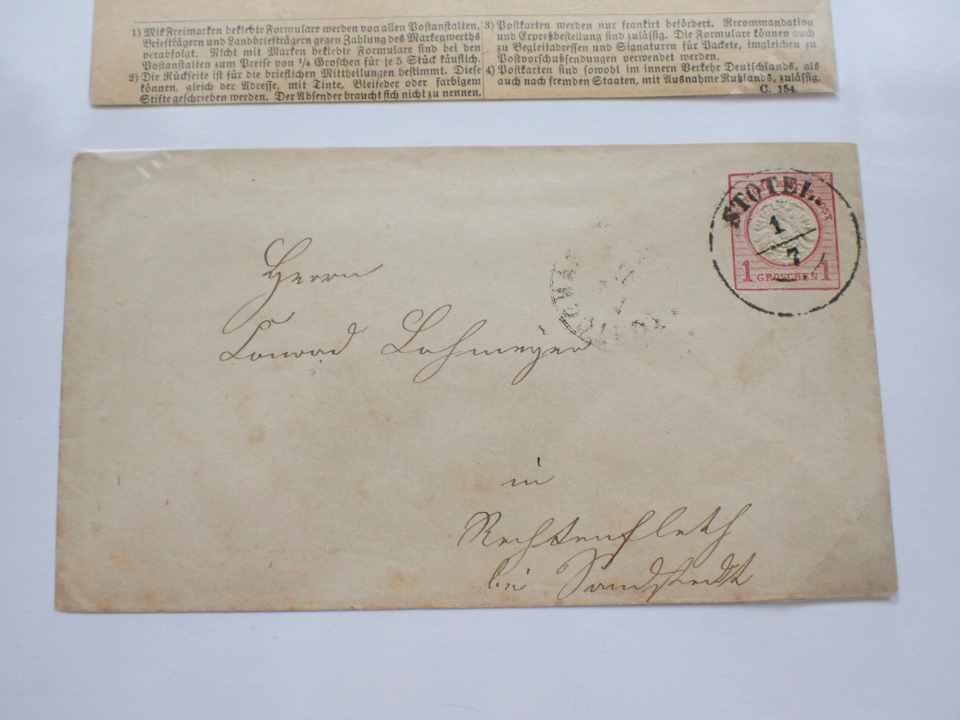 1) Mit Freimarken beklebte Formulare werden von allen Postanstalten,
Briefträgern und Landbriefträgern gegen Zahlung des Markenwerths
verabfolgt. Nicht mit Marken beklebte Formulare sind bei den
Postanstalten zum Preise von ¼ Groschen für je 5 Stück käuflich.
2) Die Rückseite ist für die brieflichen Mittheilungen bestimmt. Diese
können, gleich der Adresse, mit Tinte, Bleifeder oder farbigem
Stifte geschrieben werden. Der Absender braucht sich nicht zu nennen.
3) Postkarten werden nur frankirt befördert. Recommandation
und Expreßbestellung sind zulässig. Die Formulare können auch
zu Begleitadressen und Signaturen für Packete, imgleichen zu
Postvorschußsendungen verwendet werden.
4) Postkarten sind sowohl im innern Verkehr Deutschlands, als
auch nach fremden Staaten, mit Ausnahme Rußlands, zulässig.
C. 154
STOTEL
1
7
1 GROSCHEN 1
Herrn
Conrad Lohmeyer
in
Rechtenfleth
bei Sandstedt